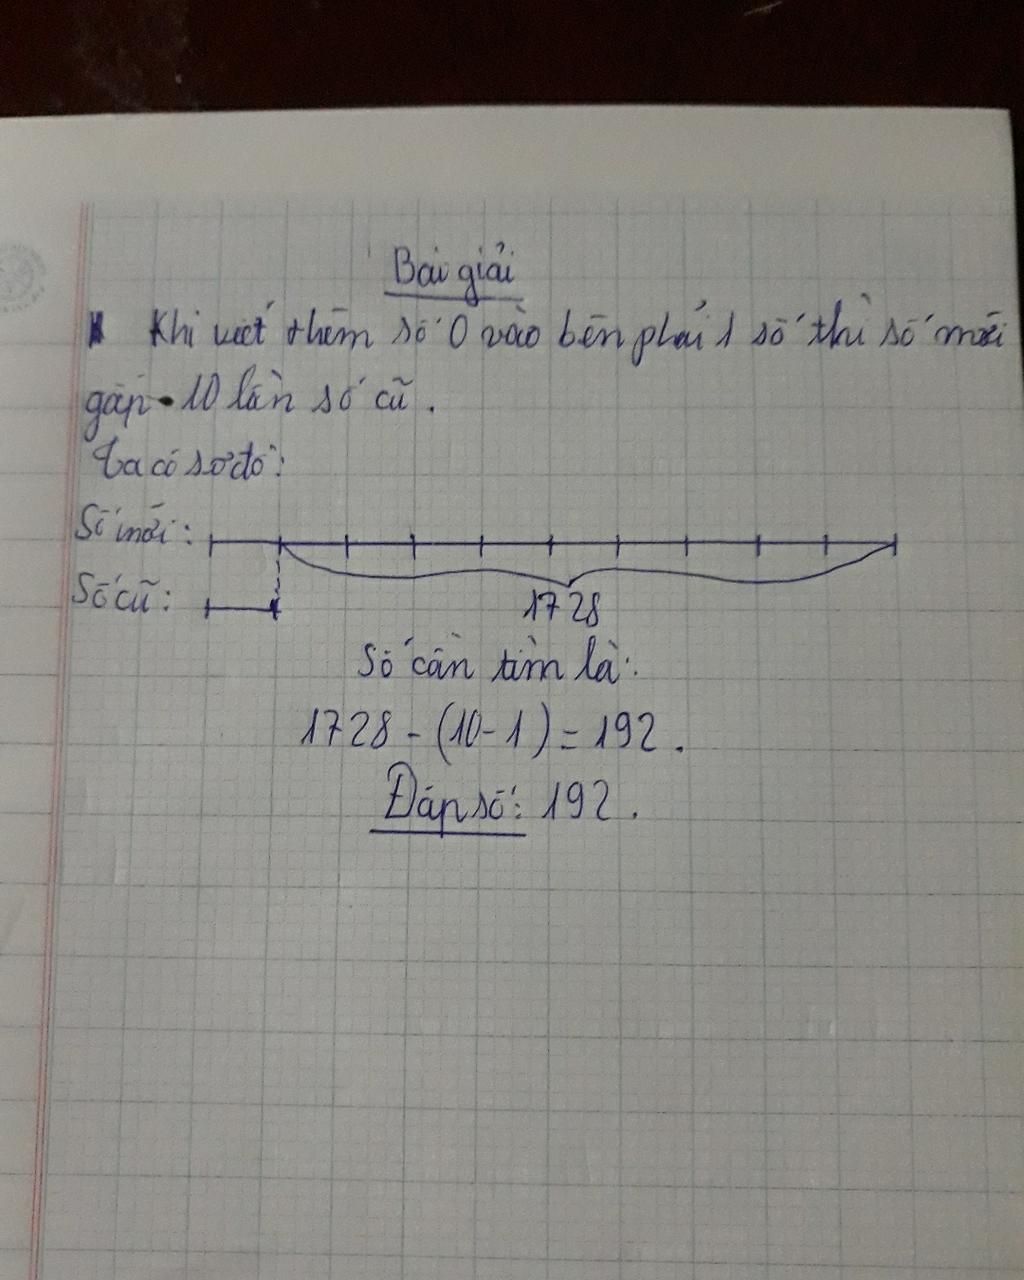 Bài giải
Khi viết thêm số 0 vào bên phải 1 số thì số mới
gấp 10 lần số cũ.
Ta có sơ đồ:
Số mới:
Số cũ:
1728
Số cần tìm là:
1728 - (10-1) = 192.
Đáp số: 192.